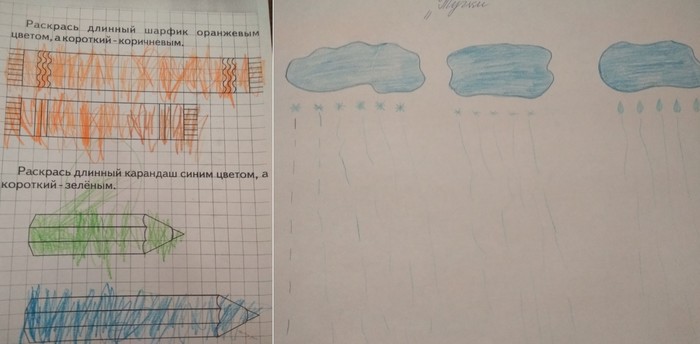 Раскрась длинный шарфик оранжевым
цветом, а короткий - коричневым.
Раскрась длинный карандаш синим цветом, а
короткий - зелёным.
"Тучки